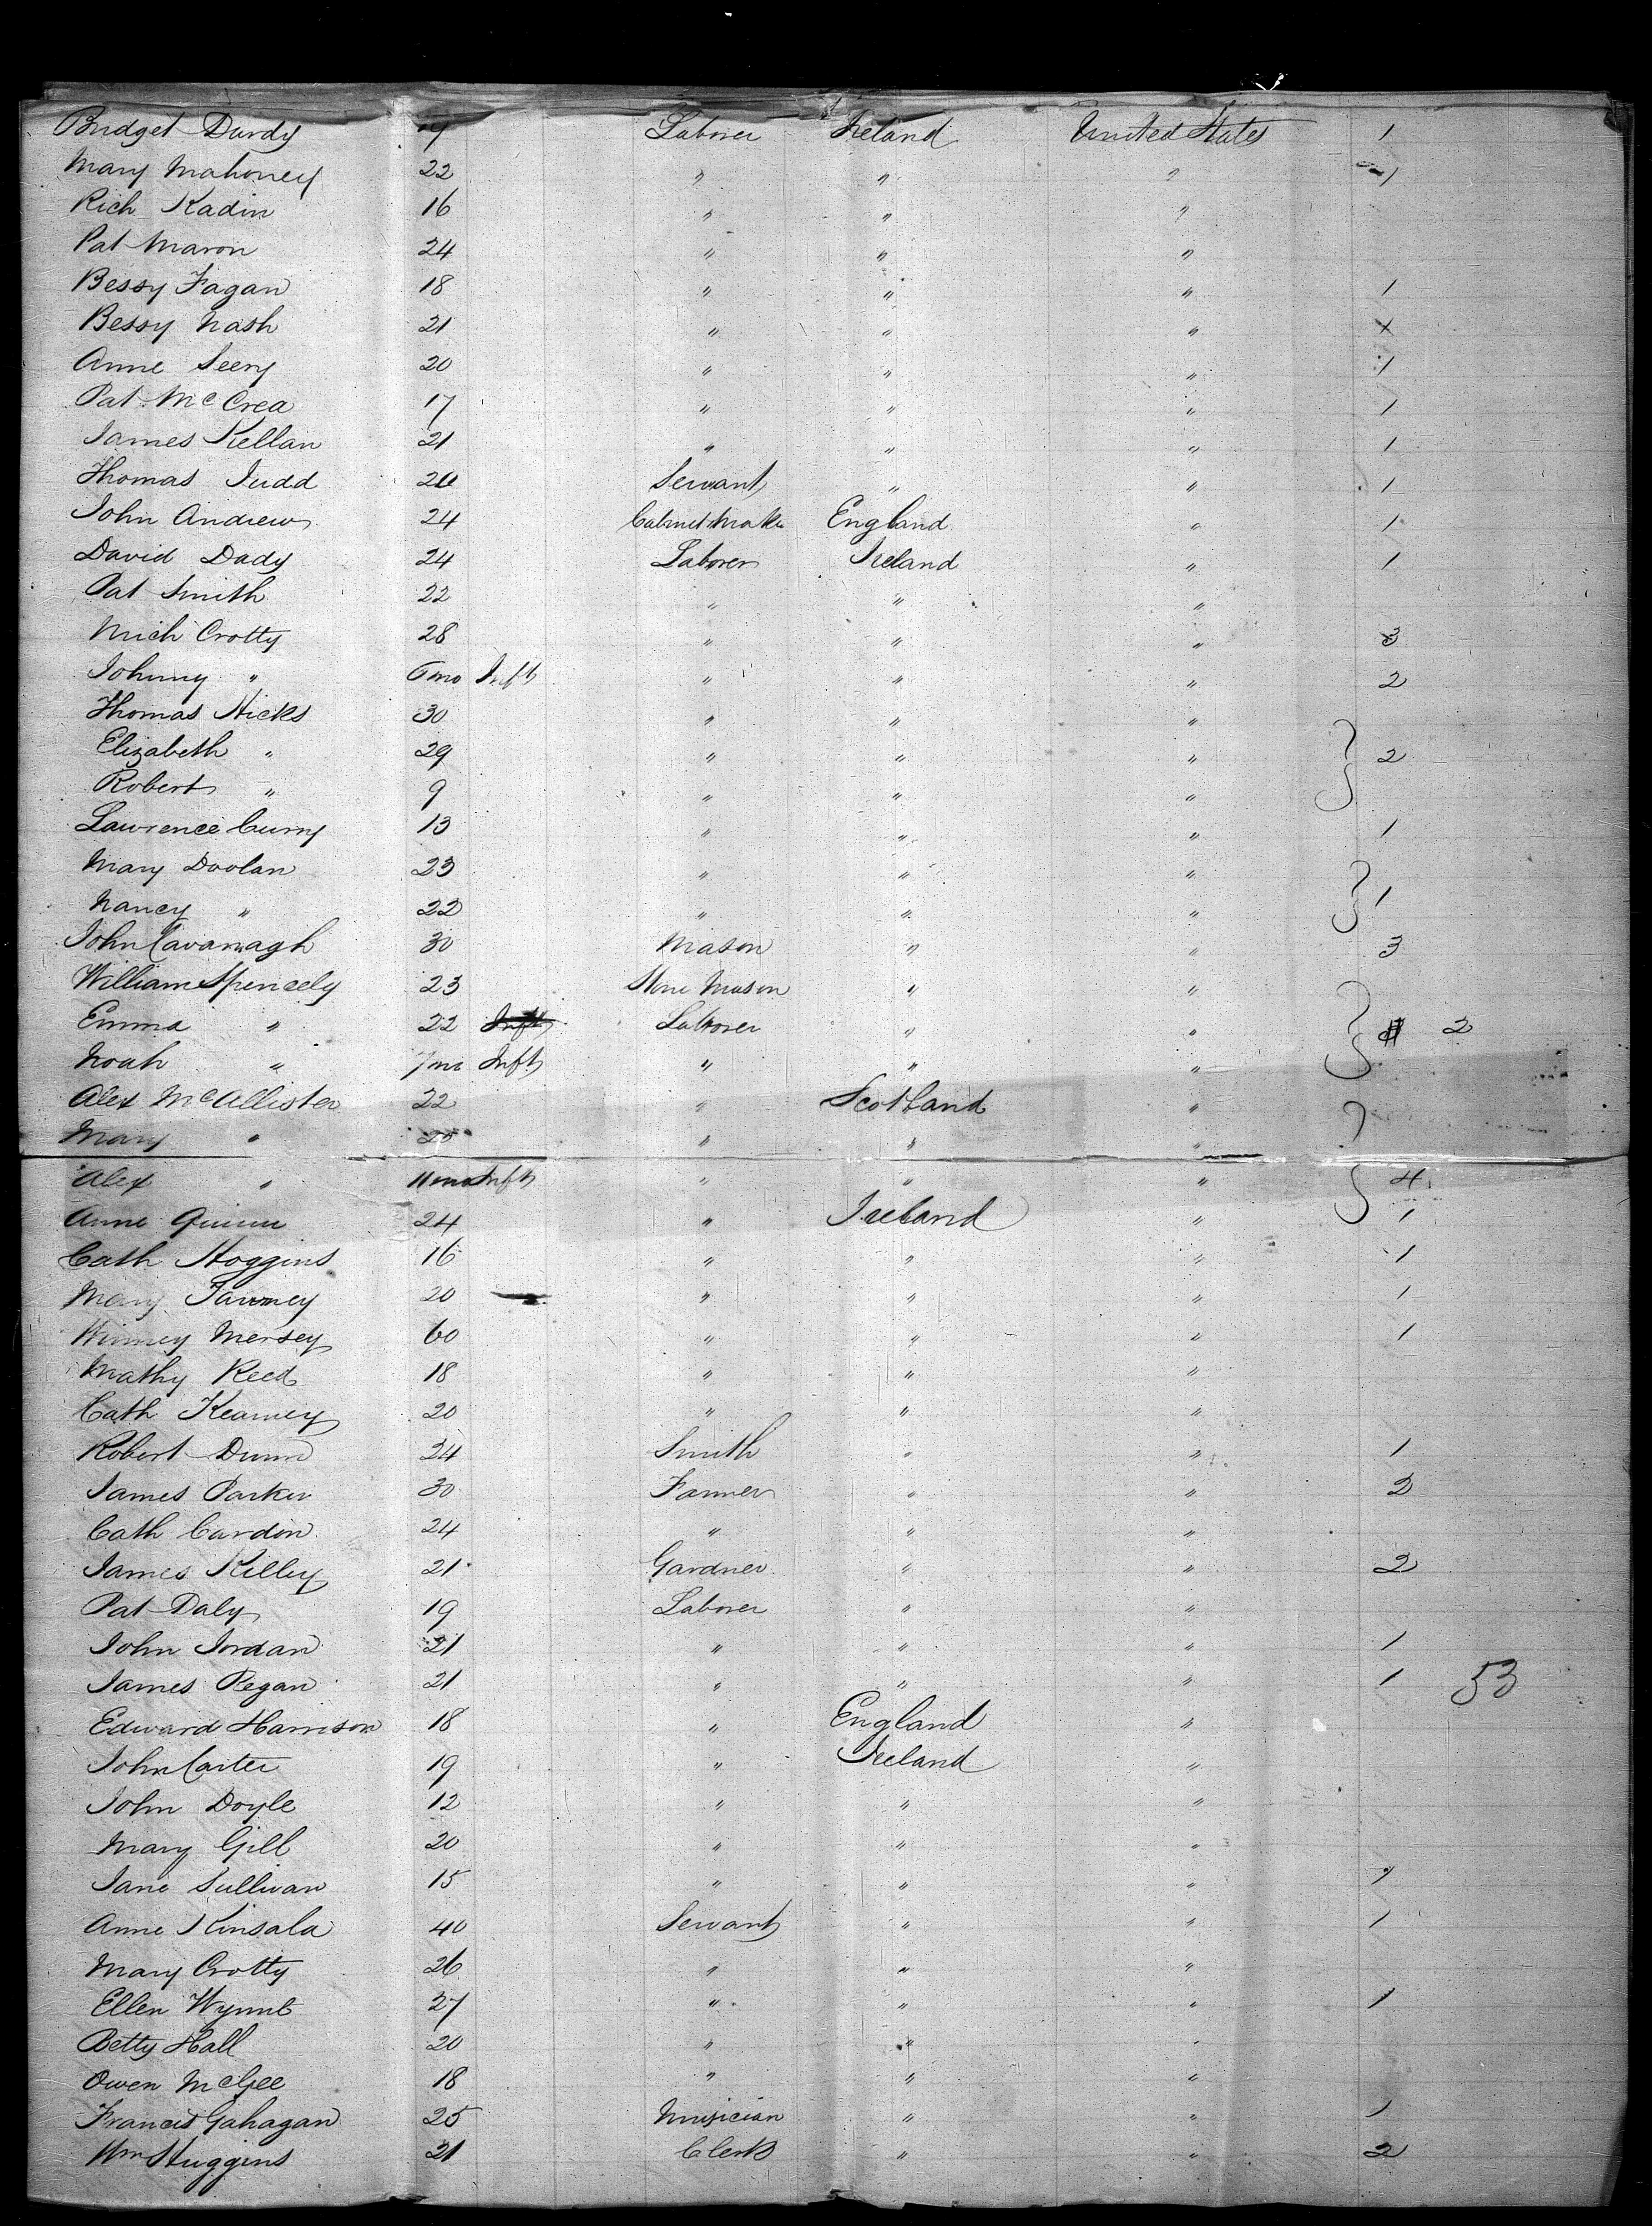 Bridget Durdy 19 Laborer Ireland United States 1
Mary Mahoney 22 " " " 1
Rich Kadin 16 " " "
Pat Maron 24 " " "
Bessy Fagan 18 " " " 1
Bessy Nash 21 " " " 1
Anne Seery 20 " " " 1
Pat McCrea 17 " " " 1
James Kellan 21 " " " 1
Thomas Judd 20 Servant " " 1
John Andrew 24 Cabinet Maker England " 1
David Dady 24 Laborer Ireland " 1
Pat Smith 22 " " "
Mich Crotty 28 " " " 3
Johnny " 6 mo Inft " " " 2
Thomas Hicks 30 " " "
Elizabeth " 29 " " " 2
Robert " 9 " " "
Lawrence Curry 13 " " " 1
Mary Doolan 23 " " "
Nancy " 22 " " " 1
John Cavanagh 30 Mason " " 3
William Spencely 23 Stone Mason " "
Emma " 22 Inft Laborer " " 2
Noah " 7 mo Inft " " "
Alex McAllister 22 " Scotland "
Mary " 25 " " "
Alex " 11 mo Inft " " " 4
Anne Quinn 24 " Ireland " 1
Cath Hoggins 16 " " " 1
Mary Tawney 20 " " " 1
Winney Mersey 60 " " " 1
Mathy Reed 18 " " "
Cath Kearney 20 " " "
Robert Dunn 24 Smith " " 1
James Parker 30 Farmer " " 2
Cath Cardin 24 " " "
James Kelley 21 Gardner " " 2
Pat Daly 19 Laborer " "
John Jordan 21 " " " 1
James Regan 21 " " " 1 53
Edward Harrison 18 " England "
John Carter 19 " Ireland "
John Doyle 12 " " "
Mary Gill 20 " " "
Jane Sullivan 15 " " " 1
Anne Kinsala 40 Servant " " 1
Mary Crotty 26 " " "
Ellen Wynne 27 " " " 1
Betty Hall 20 " " "
Owen McGee 18 " " "
Francis Gahagan 25 Musician " " 1
Wm Huggins 21 Clerk " " 2